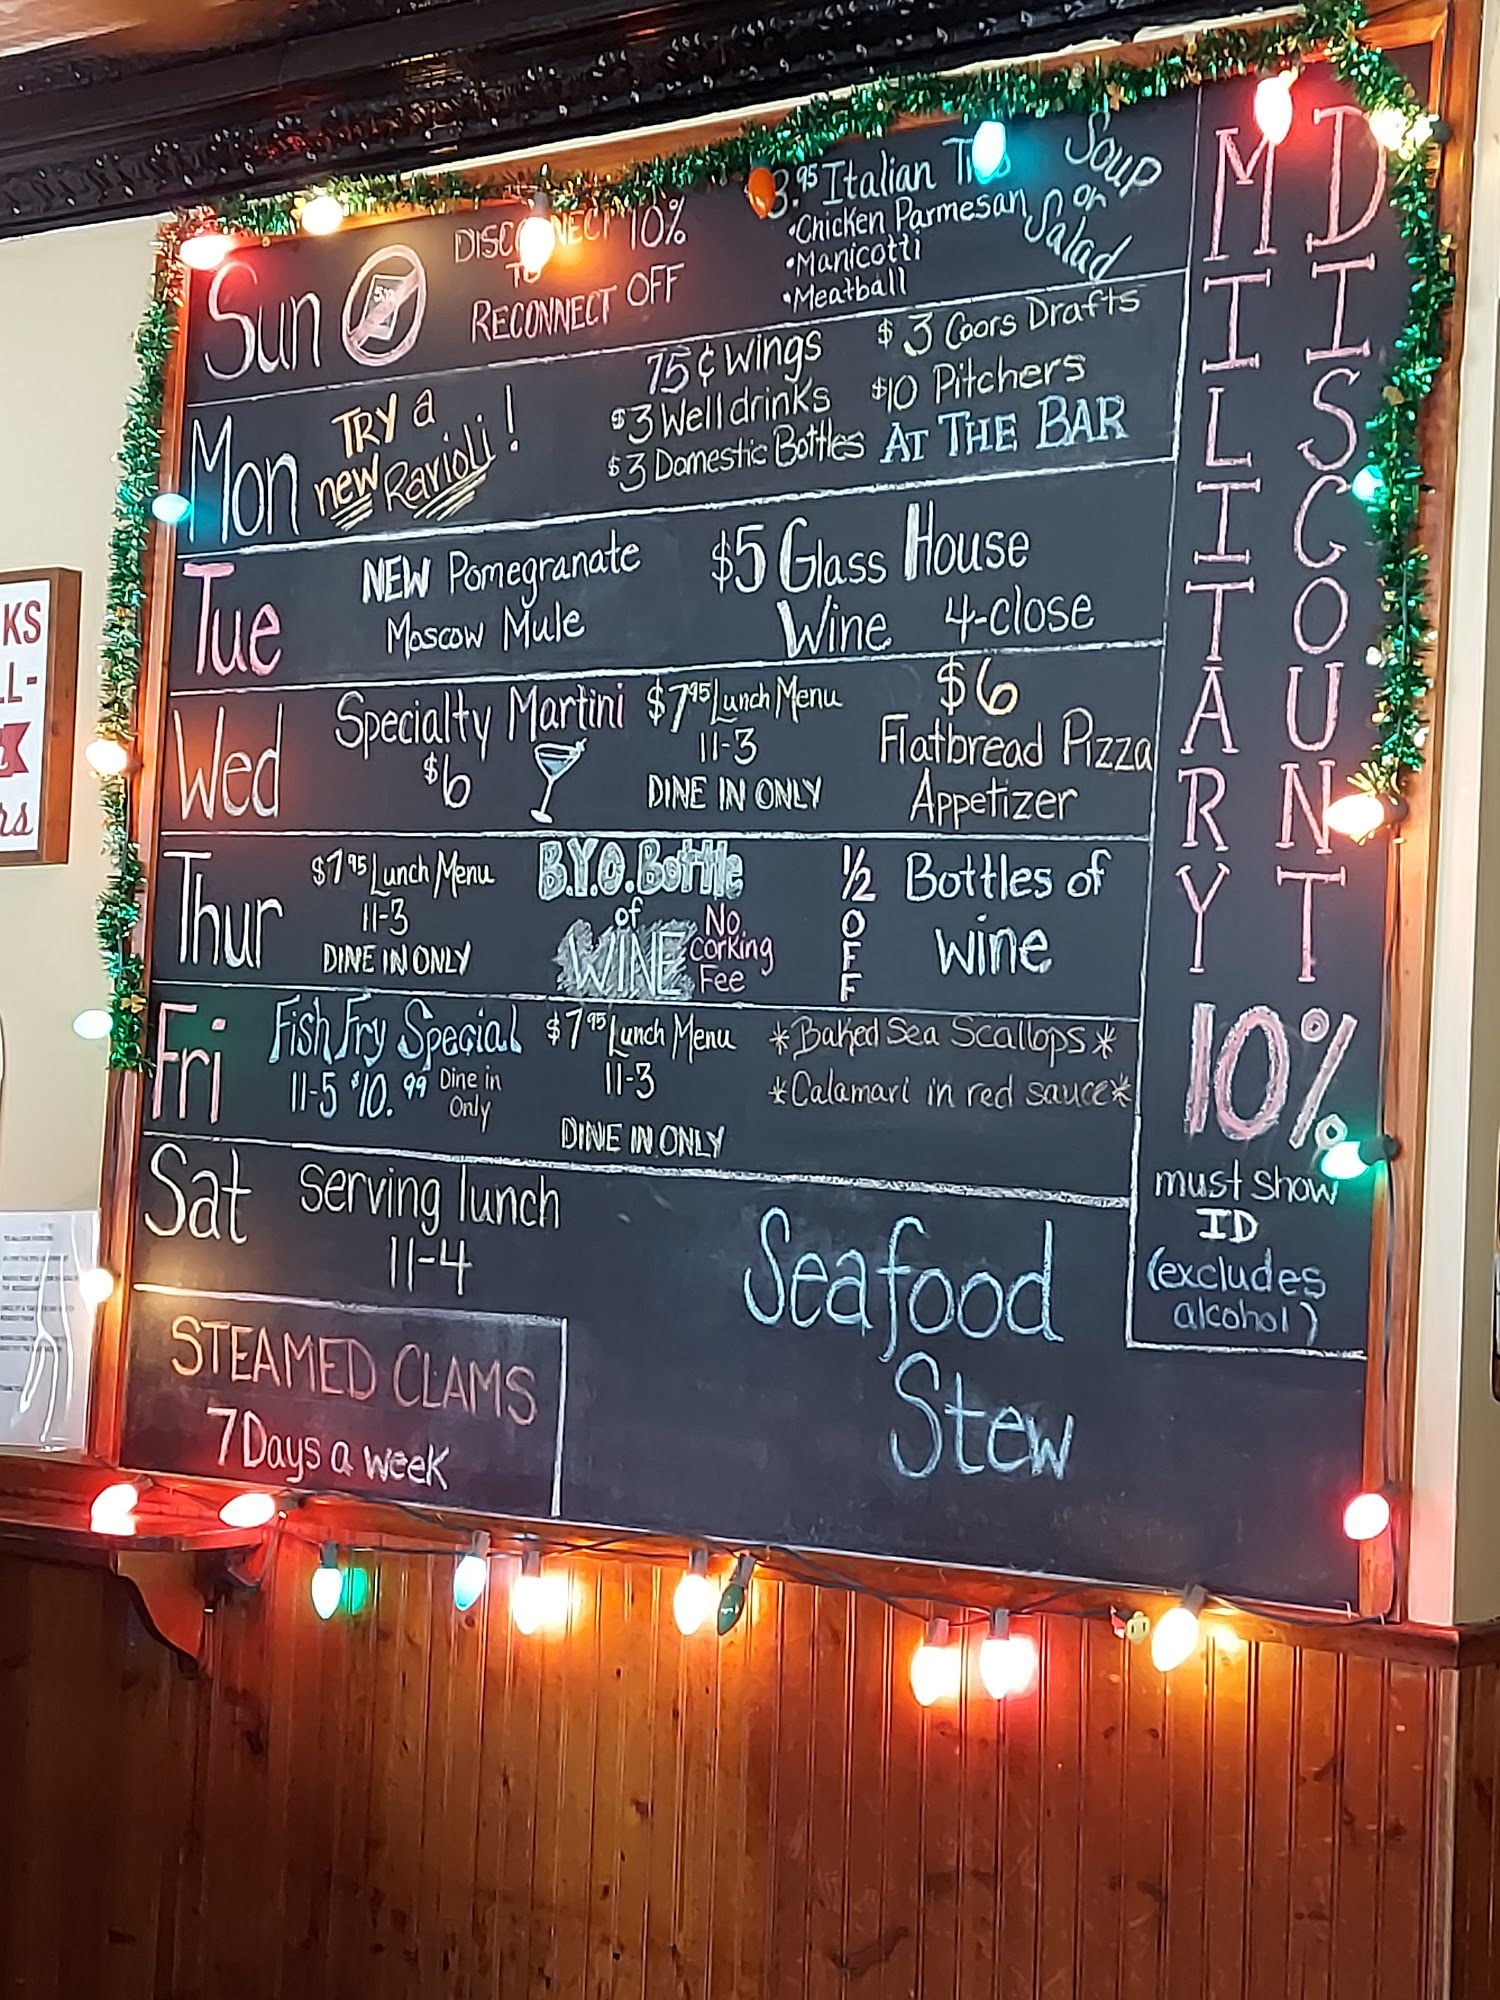 Sun
DISCONNECT 10%
TO
RECONNECT OFF
Italian
•Chicken Parmesan
•Manicotti
•Meatball
Soup
or
Salad
Mon
TRY a
new Ravioli!
75¢ Wings
$3 Well drinks
$3 Domestic Bottles
$3 Coors Drafts
$10 Pitchers
AT THE BAR
Tue
NEW Pomegranate
Moscow Mule
$5 Glass House
Wine 4-close
Wed
Specialty Martini
$6
$7.95 Lunch Menu
11-3
DINE IN ONLY
$6
Flatbread Pizza
Appetizer
Thur
$7.95 Lunch Menu
11-3
DINE IN ONLY
B.Y.O. Bottle
of
WINE
No
corking
Fee
1/2
OFF
Bottles of
wine
Fri
Fish Fry Special
11-5 $10.99 Dine in
Only
$7.95 Lunch Menu
11-3
DINE IN ONLY
*Baked Sea Scallops*
*Calamari in red sauce*
Sat
Serving lunch
11-4
Seafood
Stew
STEAMED CLAMS
7 Days a week
MILITARY
DISCOUNT
10%
must show
ID
(excludes
alcohol)
KS
LL-
rs